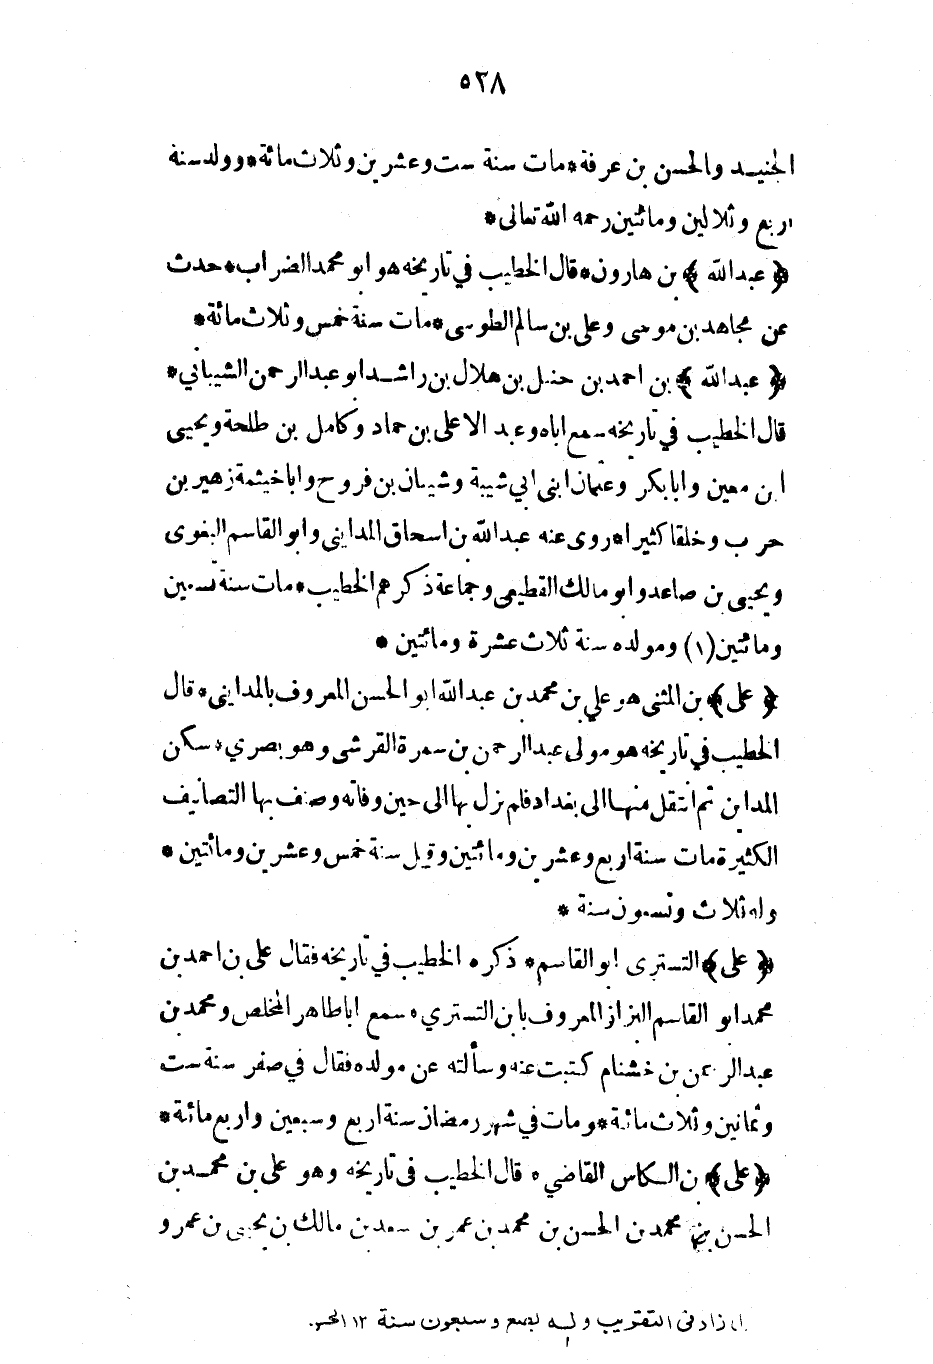 ٥٢٨
الجنيد والحسن بن عرفة * مات سنة ست وعشرين وثلاث مائة * وولد سنة
اربع وثلاثين ومائتين رحمه الله تعالى *
﴿ عبدالله ﴾ بن هارون * قال الخطيب في تاريخه هو ابو محمد الضراب * حدث
عن مجاهد بن موسى وعلي بن سالم الطوسى * مات سنة خمس وثلاث مائة *
﴿ عبدالله ﴾ بن احمد بن حنبل بن هلال بن راشد ابو عبدالرحمن الشيباني *
قال الخطيب في تاريخه سمع اباه وعبد الاعلى بن حماد وكامل بن طلحة ويحيى
ابن معين وابا بكر وعثمان ابنى ابي شيبة وشيبان بن فروح وابا خيثمة زهير بن
حرب وخلقا كثيرا * روى عنه عبدالله بن اسحاق المدايني وابو القاسم البغوى
ويحيى بن صاعد وابو مالك القطيعى وجماعة ذكرهم الخطيب * مات سنة تسعين
ومائتين (١) ومولده سنة ثلاث عشرة ومائتين *
﴿ على ﴾ بن المثنى هو علي بن محمد بن عبدالله ابو الحسن المعروف بالمدايني * قال
الخطيب في تاريخه هو مولى عبدالرحمن بن سمرة القرشى وهو بصري * سكن
المداين ثم انتقل منها الى بغداد فلم يزل بها الى حين وفاته وصنف بها التصانيف
الكثيرة مات سنة اربع وعشرين ومائتين وقيل سنة خمس وعشرين ومائتين *
وله ثلاث وتسعون سنة *
﴿ على ﴾ التسترى ابو القاسم * ذكره الخطيب في تاريخه فقال على بن احمد بن
محمد ابو القاسم البزاز المعروف بابن التستري * سمع ابا طاهر المخلص ومحمد بن
عبدالرحمن بن خشنام كتبت عنه وسألته عن مولده فقال في صفر سنة ست
وثمانين وثلاث مائة * ومات في شهر رمضان سنة اربع وسبعين واربع مائة *
﴿ على ﴾ بن الكاس القاضي * قال الخطيب فى تاريخه وهو على بن محمد بن
الحسن بن محمد بن الحسن بن محمد بن عمر بن سعد بن مالك بن يحيى بن عمرو
زاد فى التقريب وله بضع وسبعون سنة ١٢ الحسن.